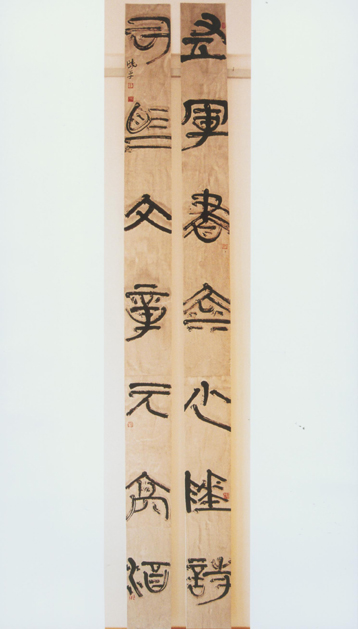 右軍書法少陵詩
司馬文章元亮酒